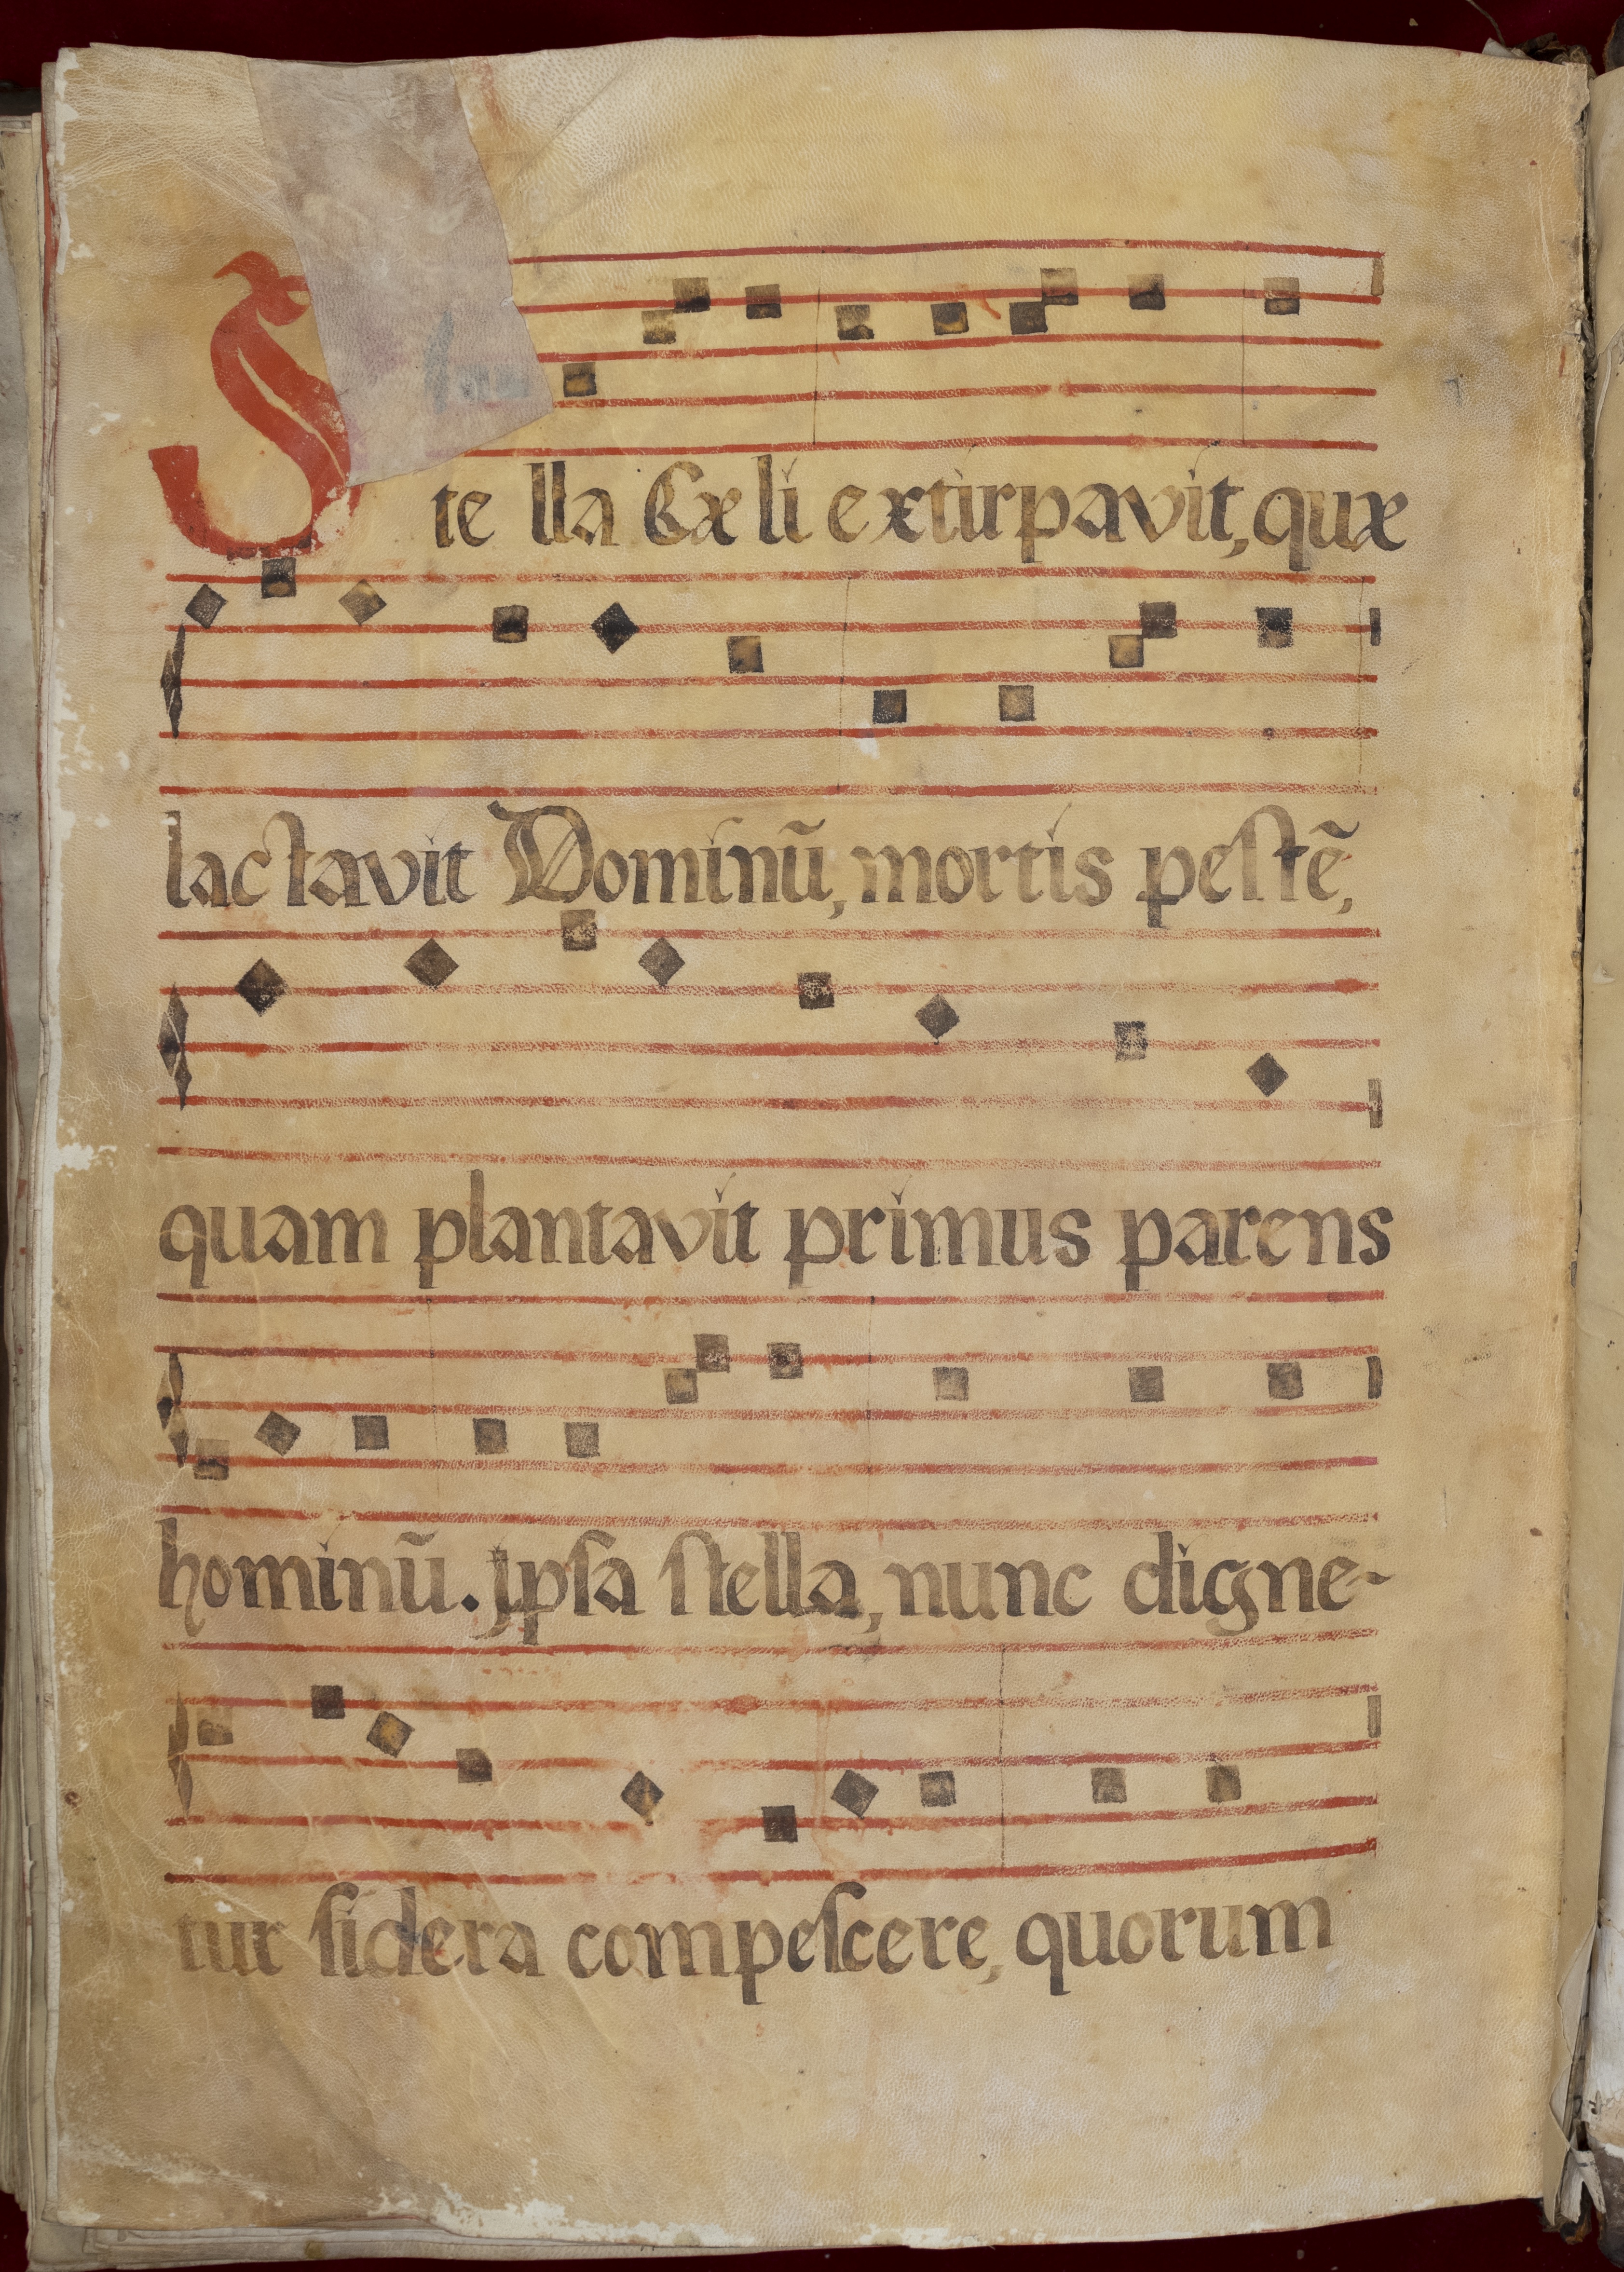 Stella Cæli extirpavit, quæ
lactavit Dominũ, mortis peſtẽ,
quam plantavit primus parens
hominũ. Jpſa ſtella, nunc digne-
tur ſidera compeſcere, quorum